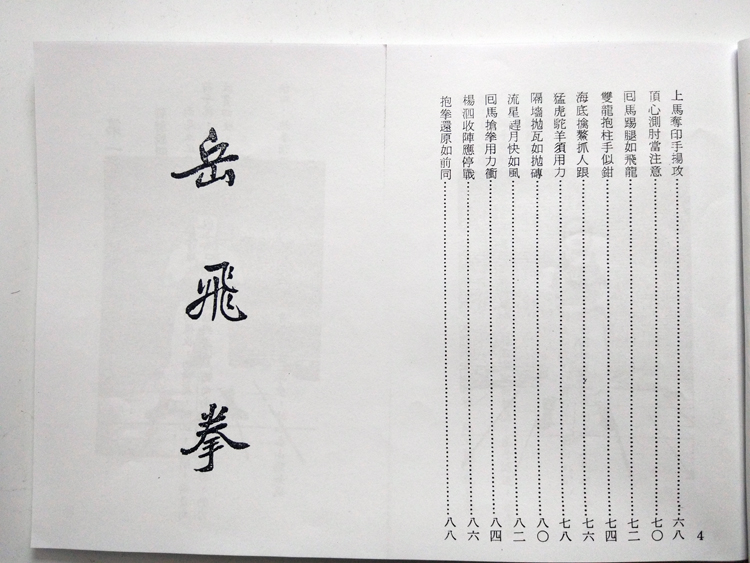 上馬奪印手揚攻⋯⋯六八
頂心測肘當注意⋯⋯七〇
囘馬踢腿如飛龍⋯⋯七二
雙龍抱柱手似鉗⋯⋯七四
海底擒鰲抓人跟⋯⋯七六
猛虎駝羊須用力⋯⋯七八
隔墻拋瓦如拋磚⋯⋯八〇
流星趕月快如風⋯⋯八二
囘馬搶拳用力衝⋯⋯八四
楊泗收陣應停戰⋯⋯八六
抱拳還原如前同⋯⋯八八
4
岳飛拳